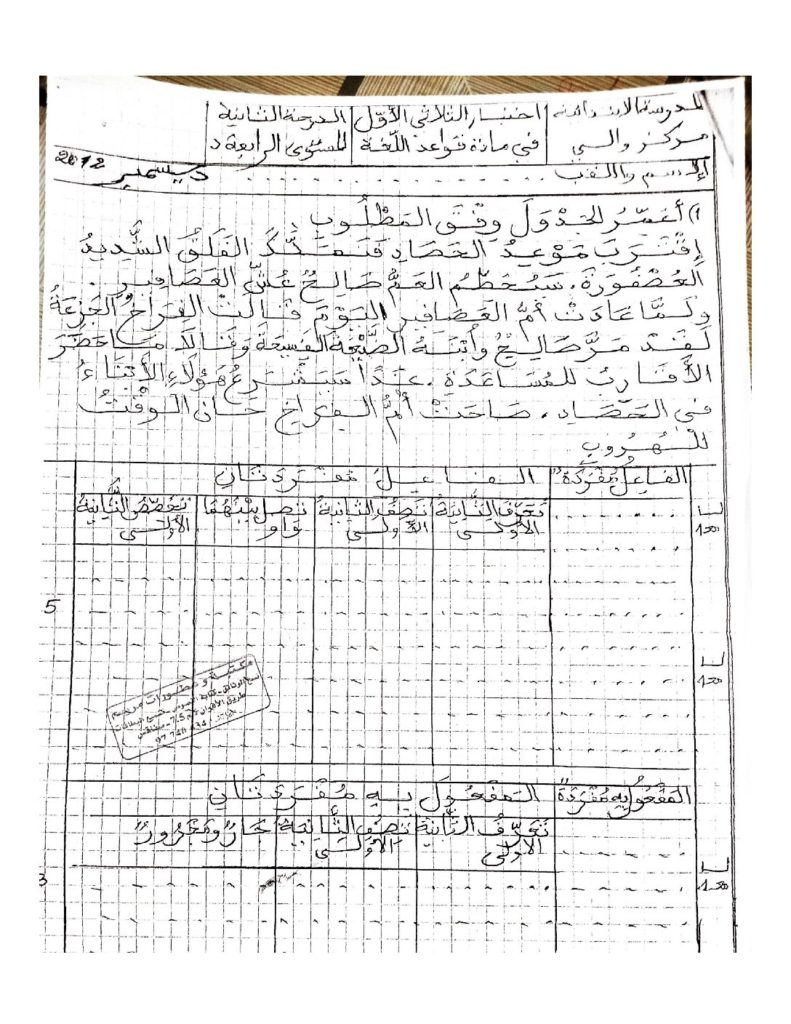 المدرسة الابتدائية
مركز والي
اختبار الثلاثي الأوّل
في مادة قواعد اللّغة
الدرجة الثانية
المستوى الرابعة د
الإسم واللقب . . . . . . . . . . . . . . . ديسمبر 2012
1) أعَمِّرُ الجَدْوَلَ وِفْقَ المَطْلُوبِ
اِقْتَرَبَ مَوْعِدُ الحَصَادِ فَتَمَلَّكَ القَلَقُ الشَّدِيدُ
العُصْفُورَةَ. سَيُحَطِّمُ العَمُّ صَالِحٌ عُشَّ العَصَافِيرِ.
ولَمَّا عَادَتْ أُمُّ العَصَافِيرِ اليَوْمَ قَالَتْ الفِرَاخُ الجَزِعَةُ
لَقَدْ مَرَّ صَالِحٌ وابْنُهُ الضَّيْعَةَ الفَسِيحَةَ وقَالَا مَا حَضَرَ
الأَقَارِبُ لِلمُسَاعَدَةِ. غَدًا سَيَشْرَعُ هَؤُلَاءِ الأَبْنَاءُ
في الحَصَادِ. صَاحَتْ أُمُّ الفِرَاخِ حَانَ الوَقْتُ
لِلْهُرُوبِ
الفَاعِلُ مُفْرَدَةٌ
الفَاعِلُ مُفْرَدَتَانِ
تُعَرِّفُ الثَّانِيَةُ الأُولَى
تَصِفُ الثَّانِيَةُ الأُولَى
تَصِلُ بَيْنَهُمَا وَاو
تُخَصِّصُ الثَّانِيَةُ الأُولَى
5
المَفْعُولُ بِهِ مُفْرَدَةٌ
المَفْعُولُ بِهِ مُفْرَدَتَانِ
تُعَرِّفُ الثَّانِيَةُ الأُولَى
تَصِفُ الثَّانِيَةُ الأُولَى
جَارٌ ومَجْرُورٌ
3
مكتبة ومطبوعات مريم